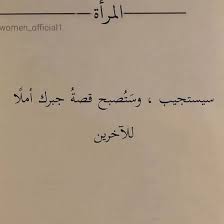 المرأة
women_official1
سيستجيب ، وَستُصبح قصةُ جبرك أملًا
للآخرين